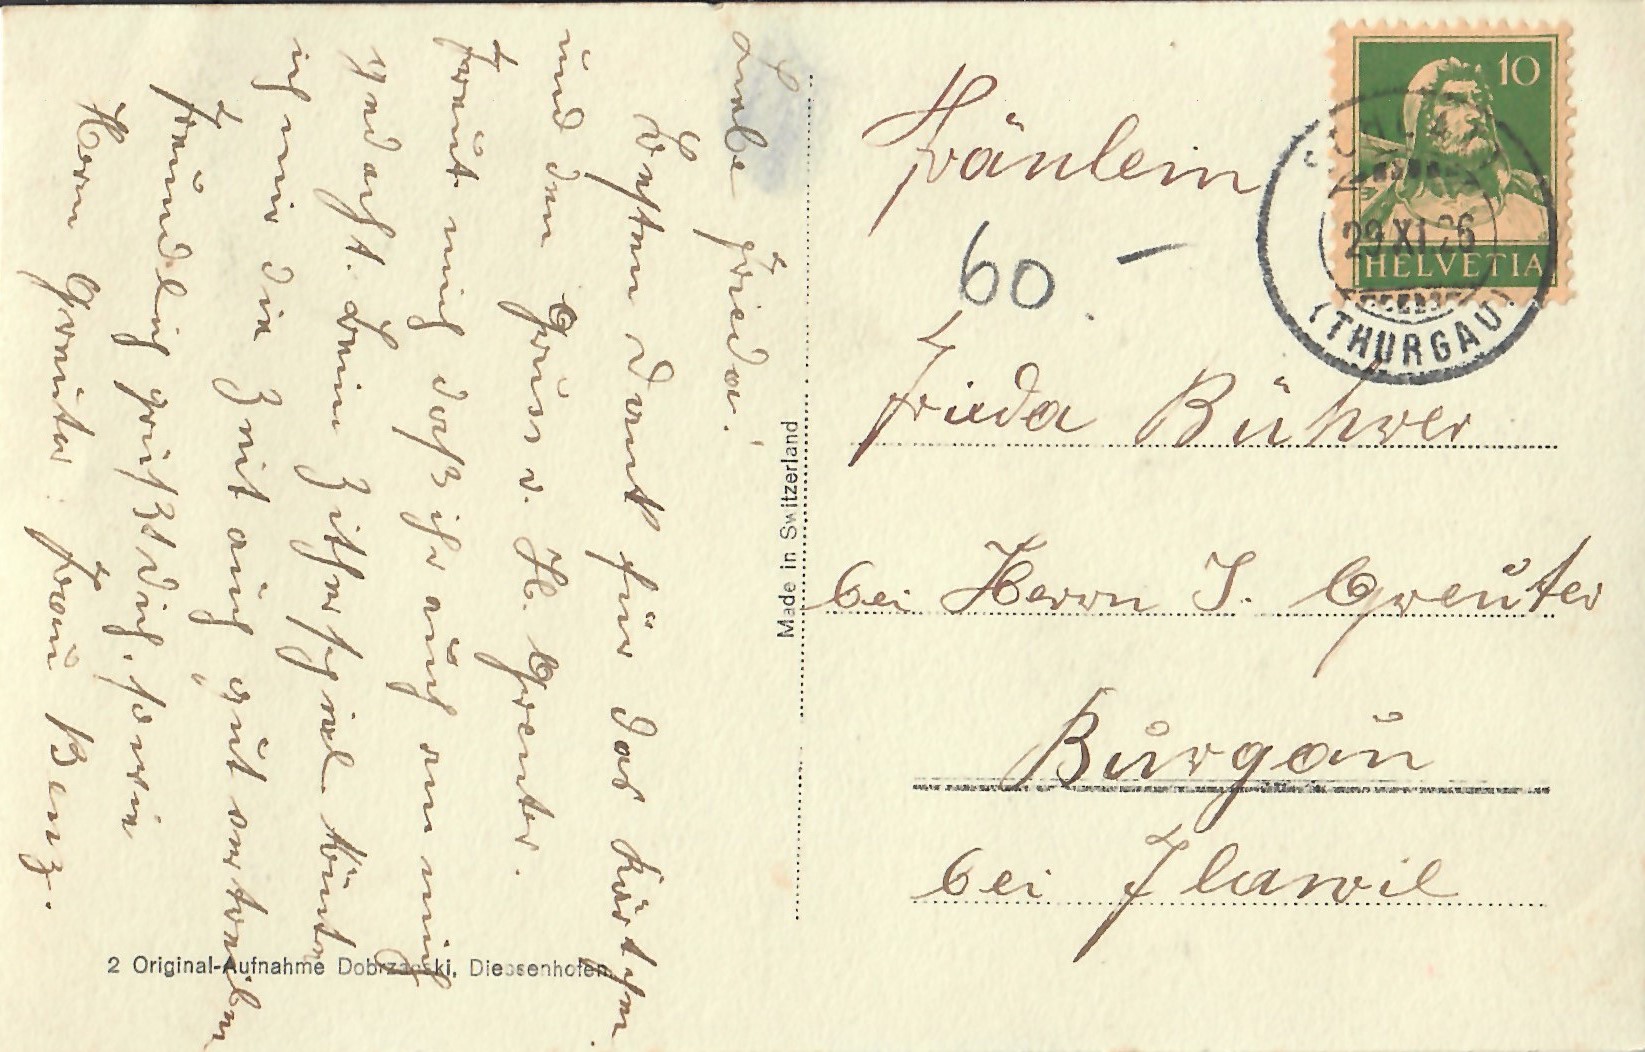 Liebe Frieda!
Besten Dank für das Kärtchen
und den Gruss v. H. Greuter.
Freut mich daß ihr auch an mich
gedacht. Beim Zitherspiel könnte
ich mir die Zeit auch gut vertreiben
Freundlich grüßt dich, sowie
Herrn Greuter Frau Benz.
2 Original-Aufnahme Dobrzanski, Diessenhofen
Made in Switzerland
10
HELVETIA
29.XI.26
(THURGAU)
Fräulein
60.–
Frieda Bührer
bei Herrn J. Greuter
Burgau
bei Flawil